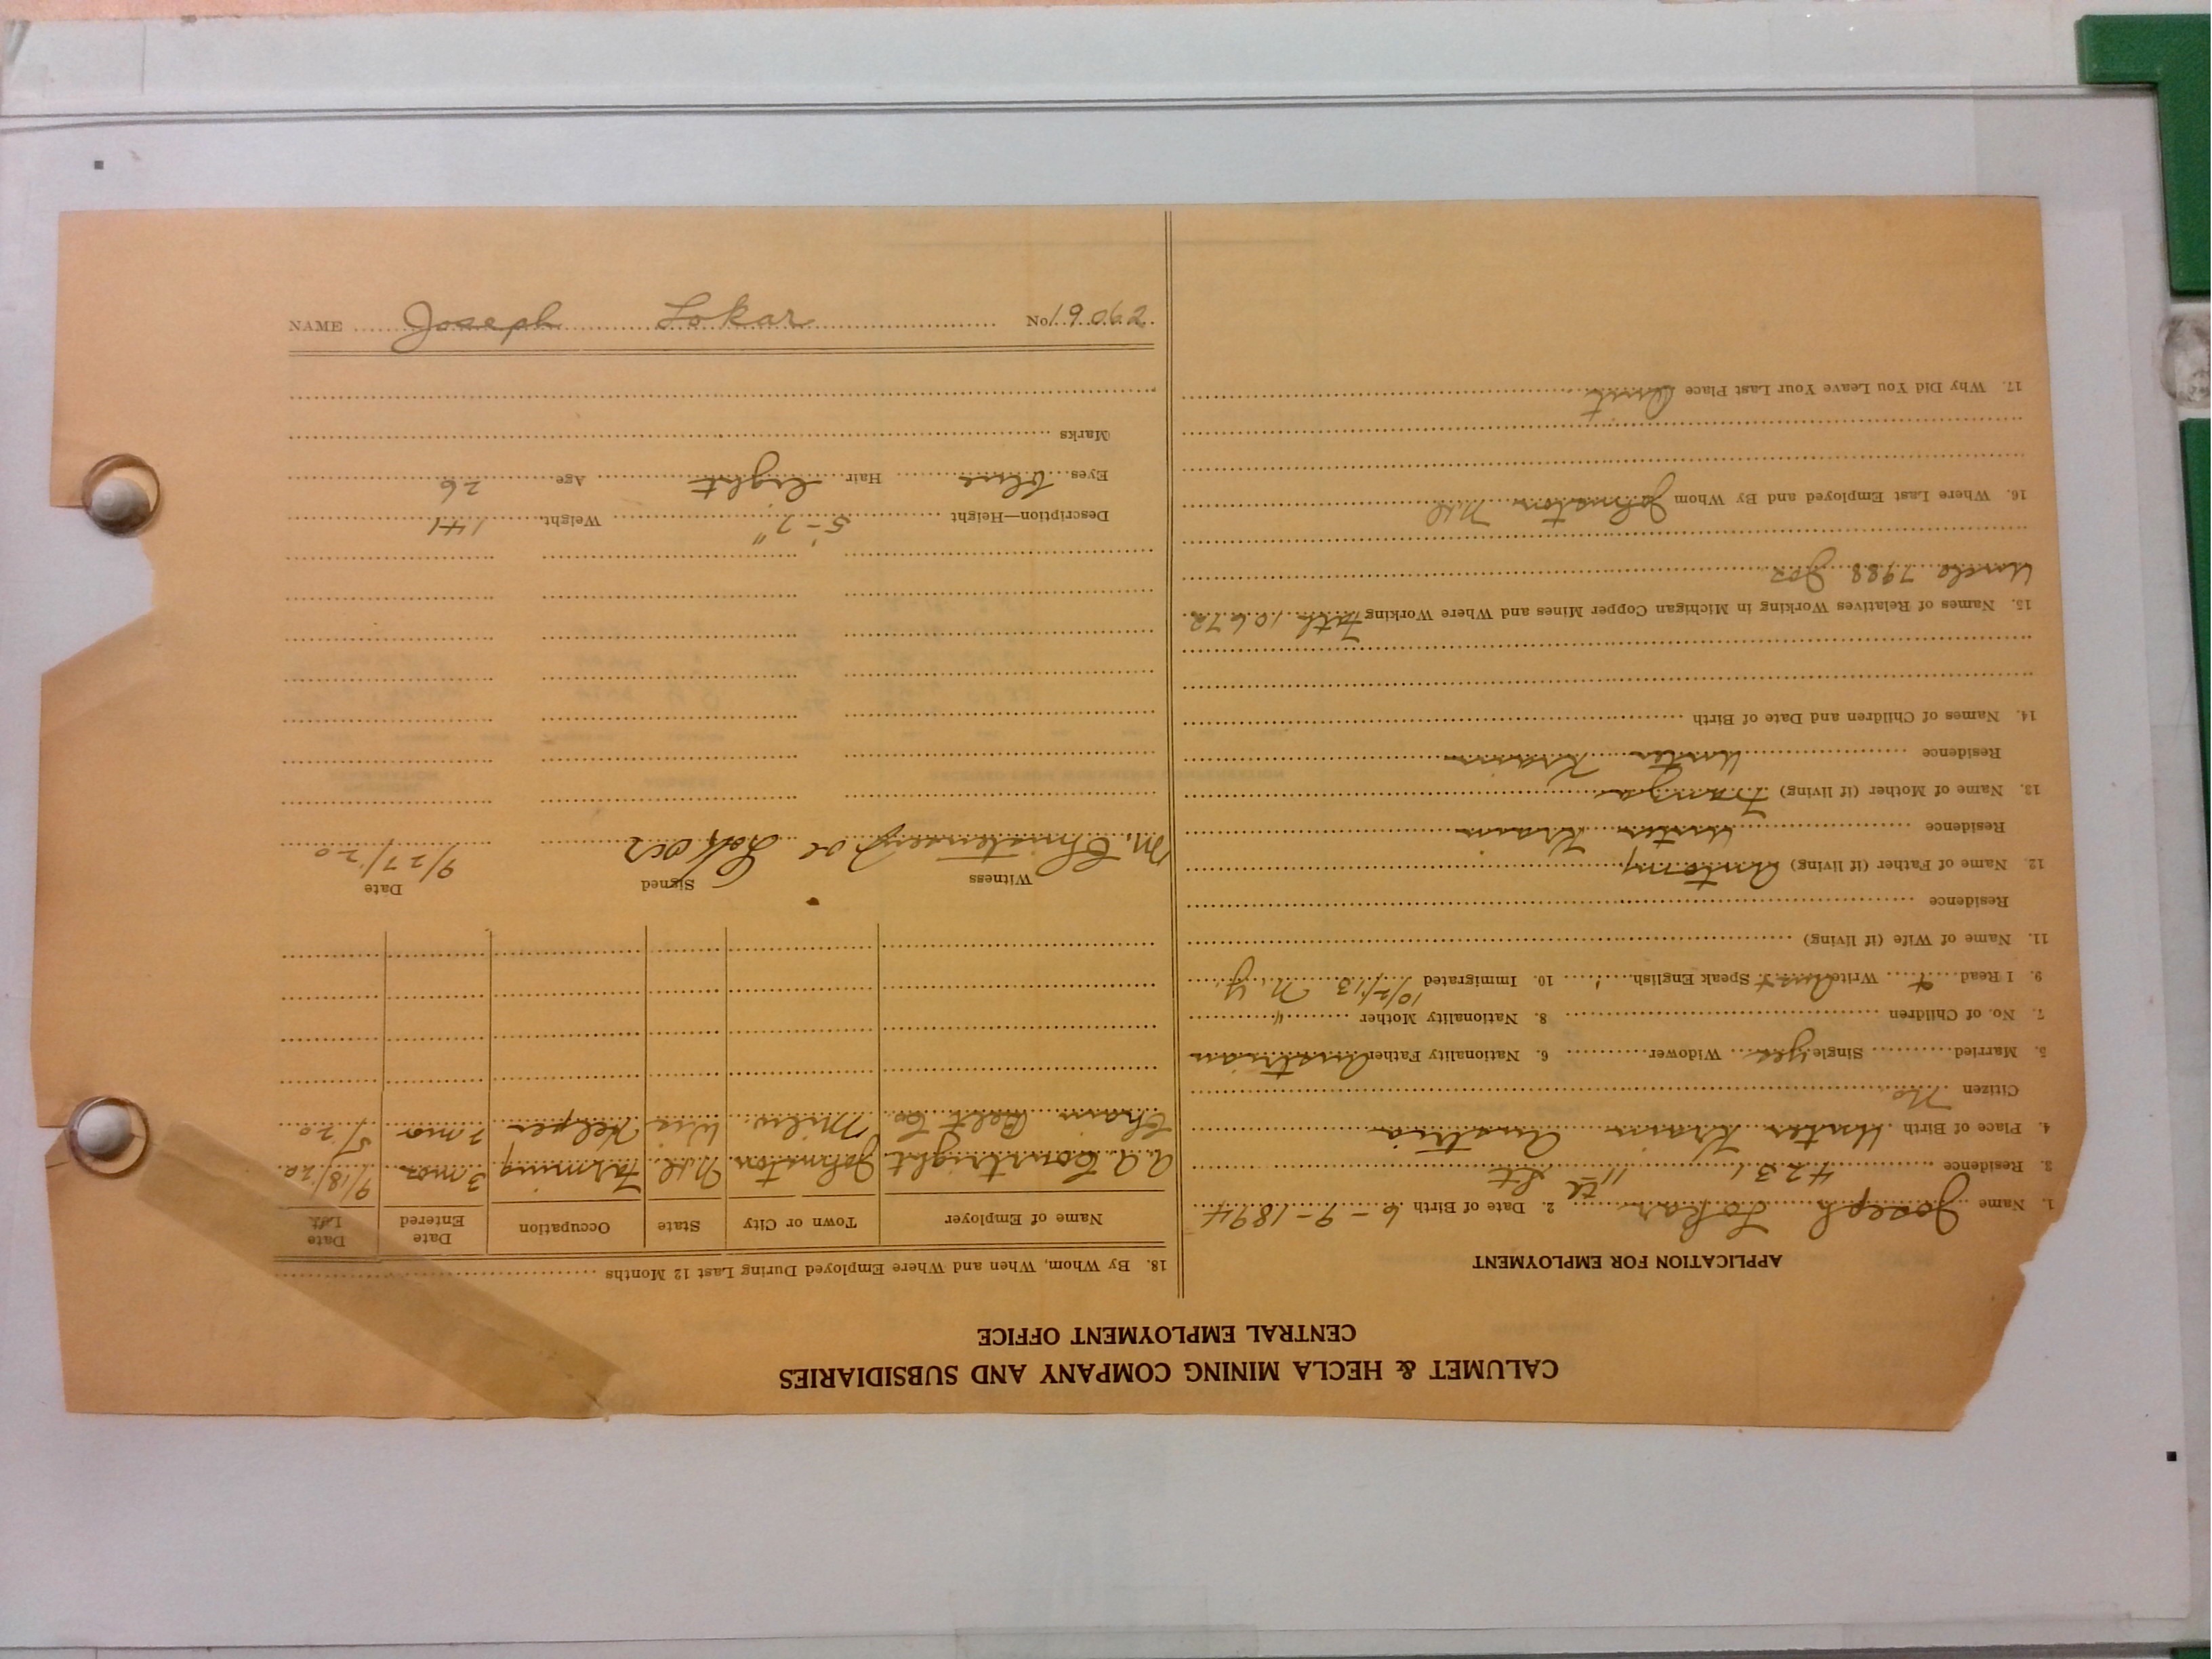 CALUMET & HECLA MINING COMPANY AND SUBSIDIARIES
CENTRAL EMPLOYMENT OFFICE
APPLICATION FOR EMPLOYMENT
1. Name Joseph Lokar 2. Date of Birth 6-9-1894
3. Residence 4231 11th St
4. Place of Birth Unter Krain Austria
Citizen No
5. Married Single yes Widower 6. Nationality Father Austrian
7. No. of Children 8. Nationality Mother "
9. I Read Write Aust Speak English 10. Immigrated 10/2/13 N.Y
11. Name of Wife (if living)
Residence
12. Name of Father (if living) Antony
Residence Unter Krain
13. Name of Mother (if living) Franza
Residence Unter Krain
14. Names of Children and Date of Birth
15. Names of Relatives Working in Michigan Copper Mines and Where Working 10672
Uncle 7988 Joz
16. Where Last Employed and By Whom Johnston
17. Why Did You Leave Your Last Place Quit
18. By Whom, When and Where Employed During Last 12 Months
Name of Employer Town or City State Occupation Date Entered Date Left
A.A. Johnston Farming 3 mos 9/18/20
Chain Belt Co Milw. Wis Helper 2 mo 5/20
Witness Signed Date
M. Christensen Joe Lokar 9/27/20
Description—Height 5'-7" Weight 141
Eyes blue Hair light Age 26
Marks
NAME Joseph Lokar No 19062